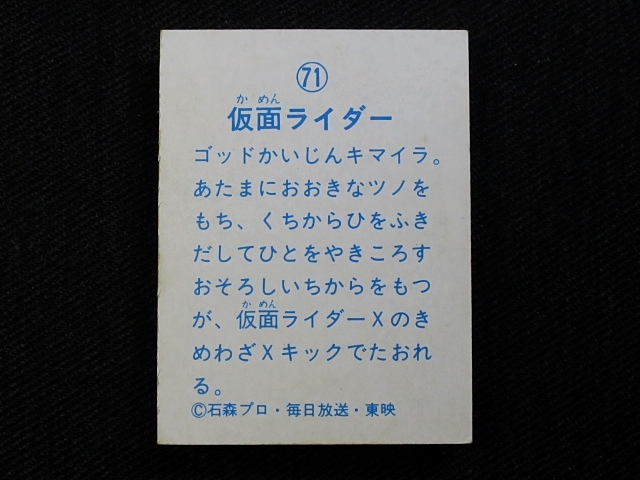 71
かめん
仮面ライダー
ゴッドかいじんキマイラ。
あたまにおおきなツノを
もち、くちからひをふき
だしてひとをやきころす
おそろしいちからをもつ
かめん
が、仮面ライダーXのき
めわざXキックでたおれ
る。
©石森プロ・毎日放送・東映